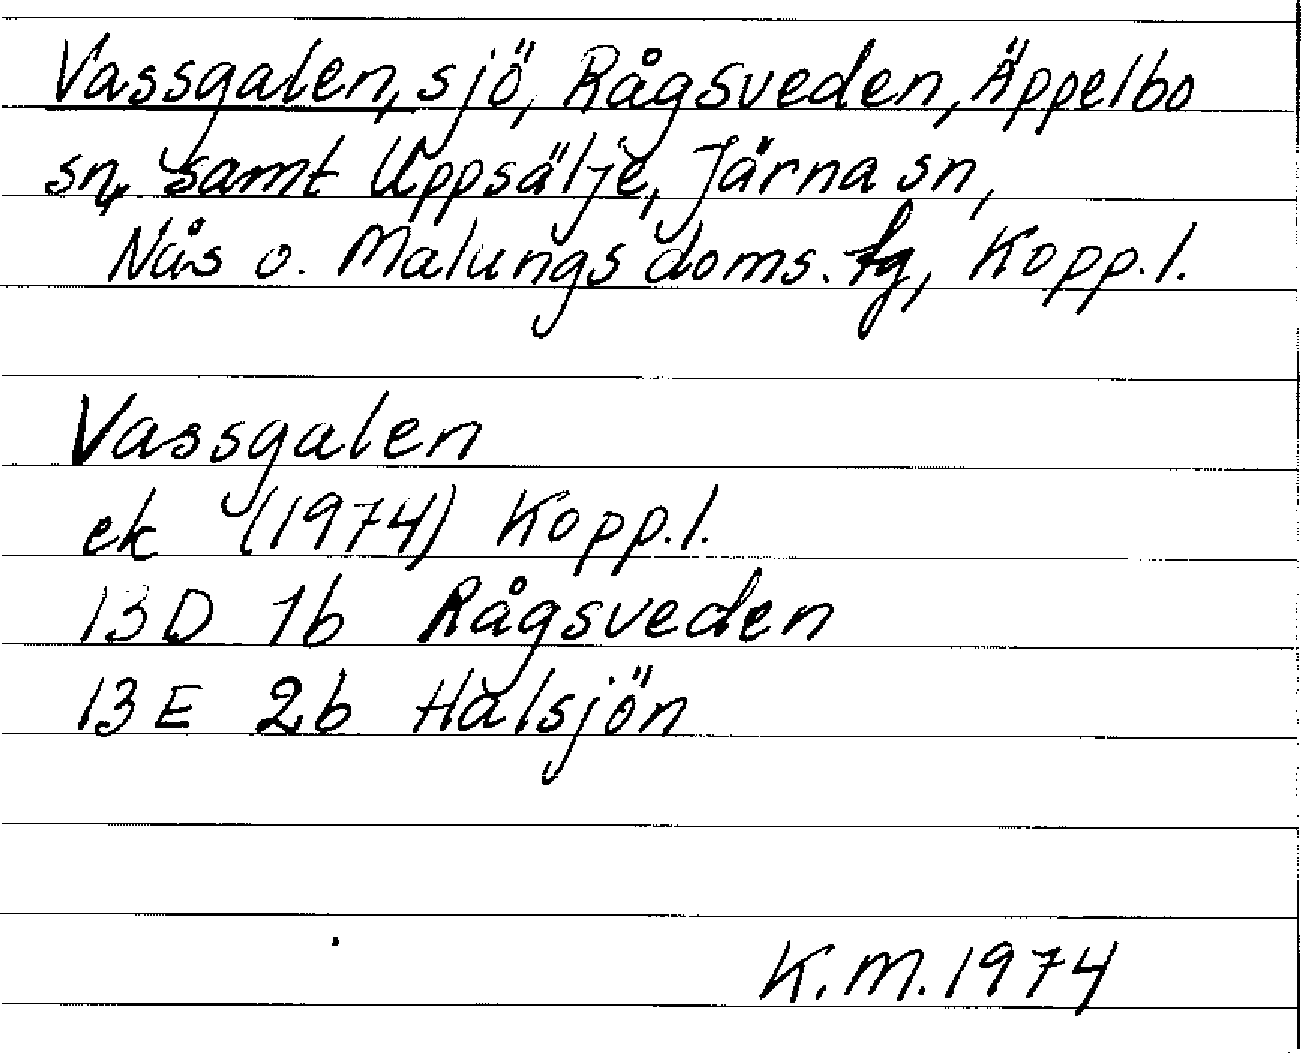 Vassgalen, sjö, Rågsveden, Äppelbo
sn, samt Uppsälje, Järna sn,
Nås o. Malungs doms. fg, Kopp.l.
Vassgalen
ek (1974) Kopp.l.
13D 1b Rågsveden
13E 2b Halsjön
K.M. 1974